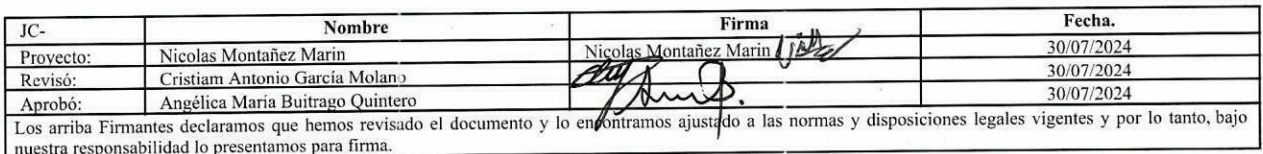 JC- Nombre Firma Fecha.
Proyecto: Nicolas Montañez Marin Nicolas Montañez Marin 30/07/2024
Revisó: Cristiam Antonio García Molano 30/07/2024
Aprobó: Angélica María Buitrago Quintero 30/07/2024
Los arriba Firmantes declaramos que hemos revisado el documento y lo encontramos ajustado a las normas y disposiciones legales vigentes y por lo tanto, bajo
nuestra responsabilidad lo presentamos para firma.